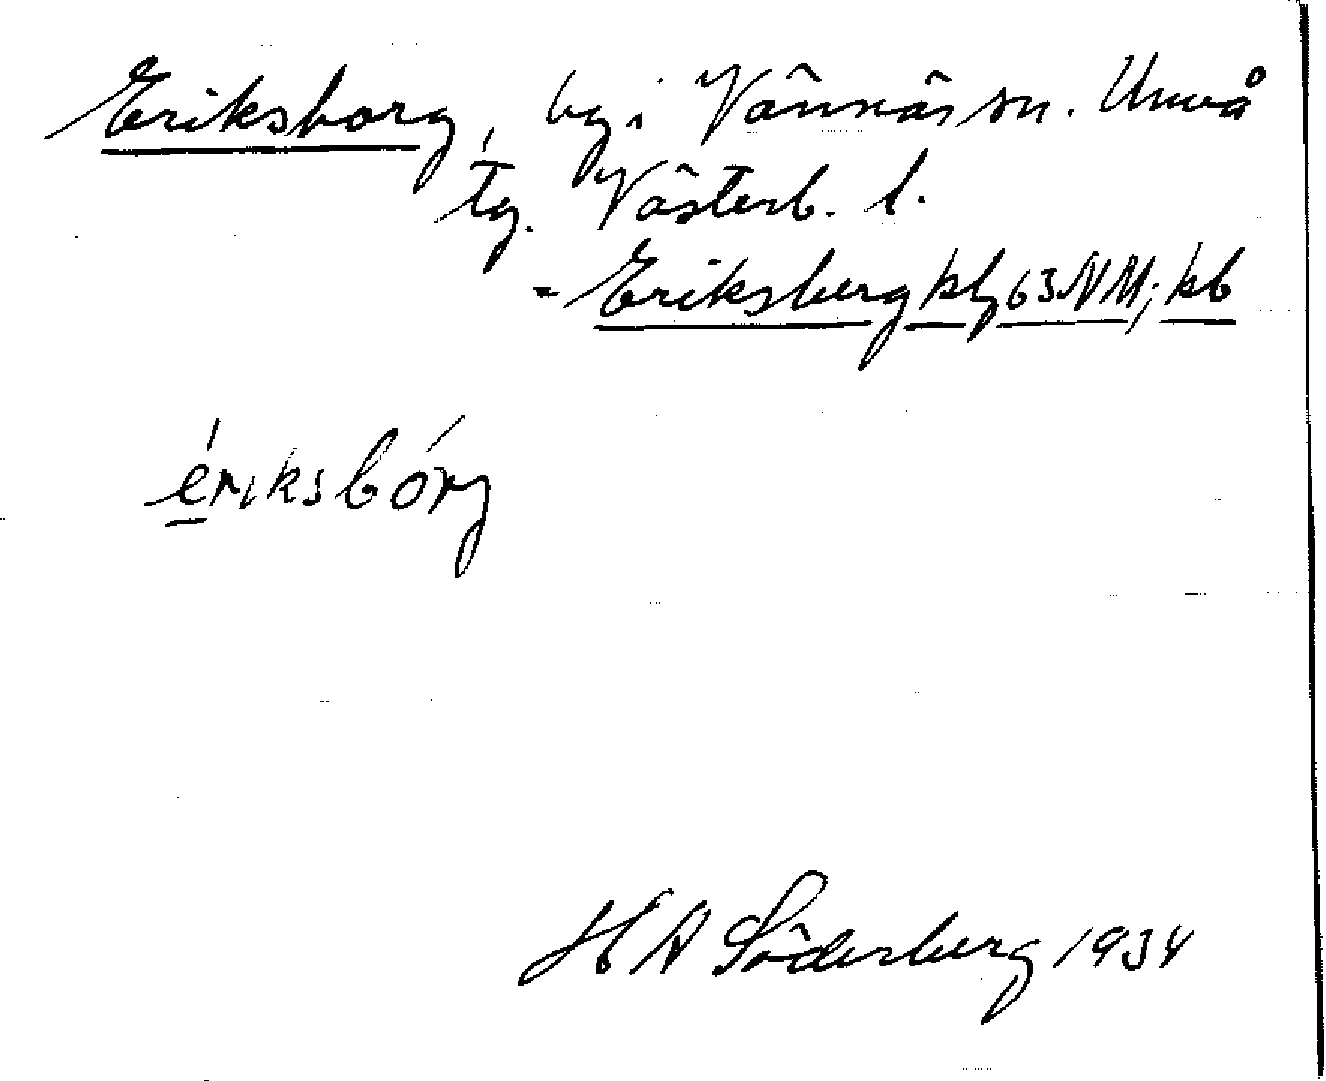 Eriksborg, by i Vännäs sn. Umeå
tg. Västerb. l.
- Eriksberg kbl 63 NM; kb
ériksbórg
H A Söderberg 1934